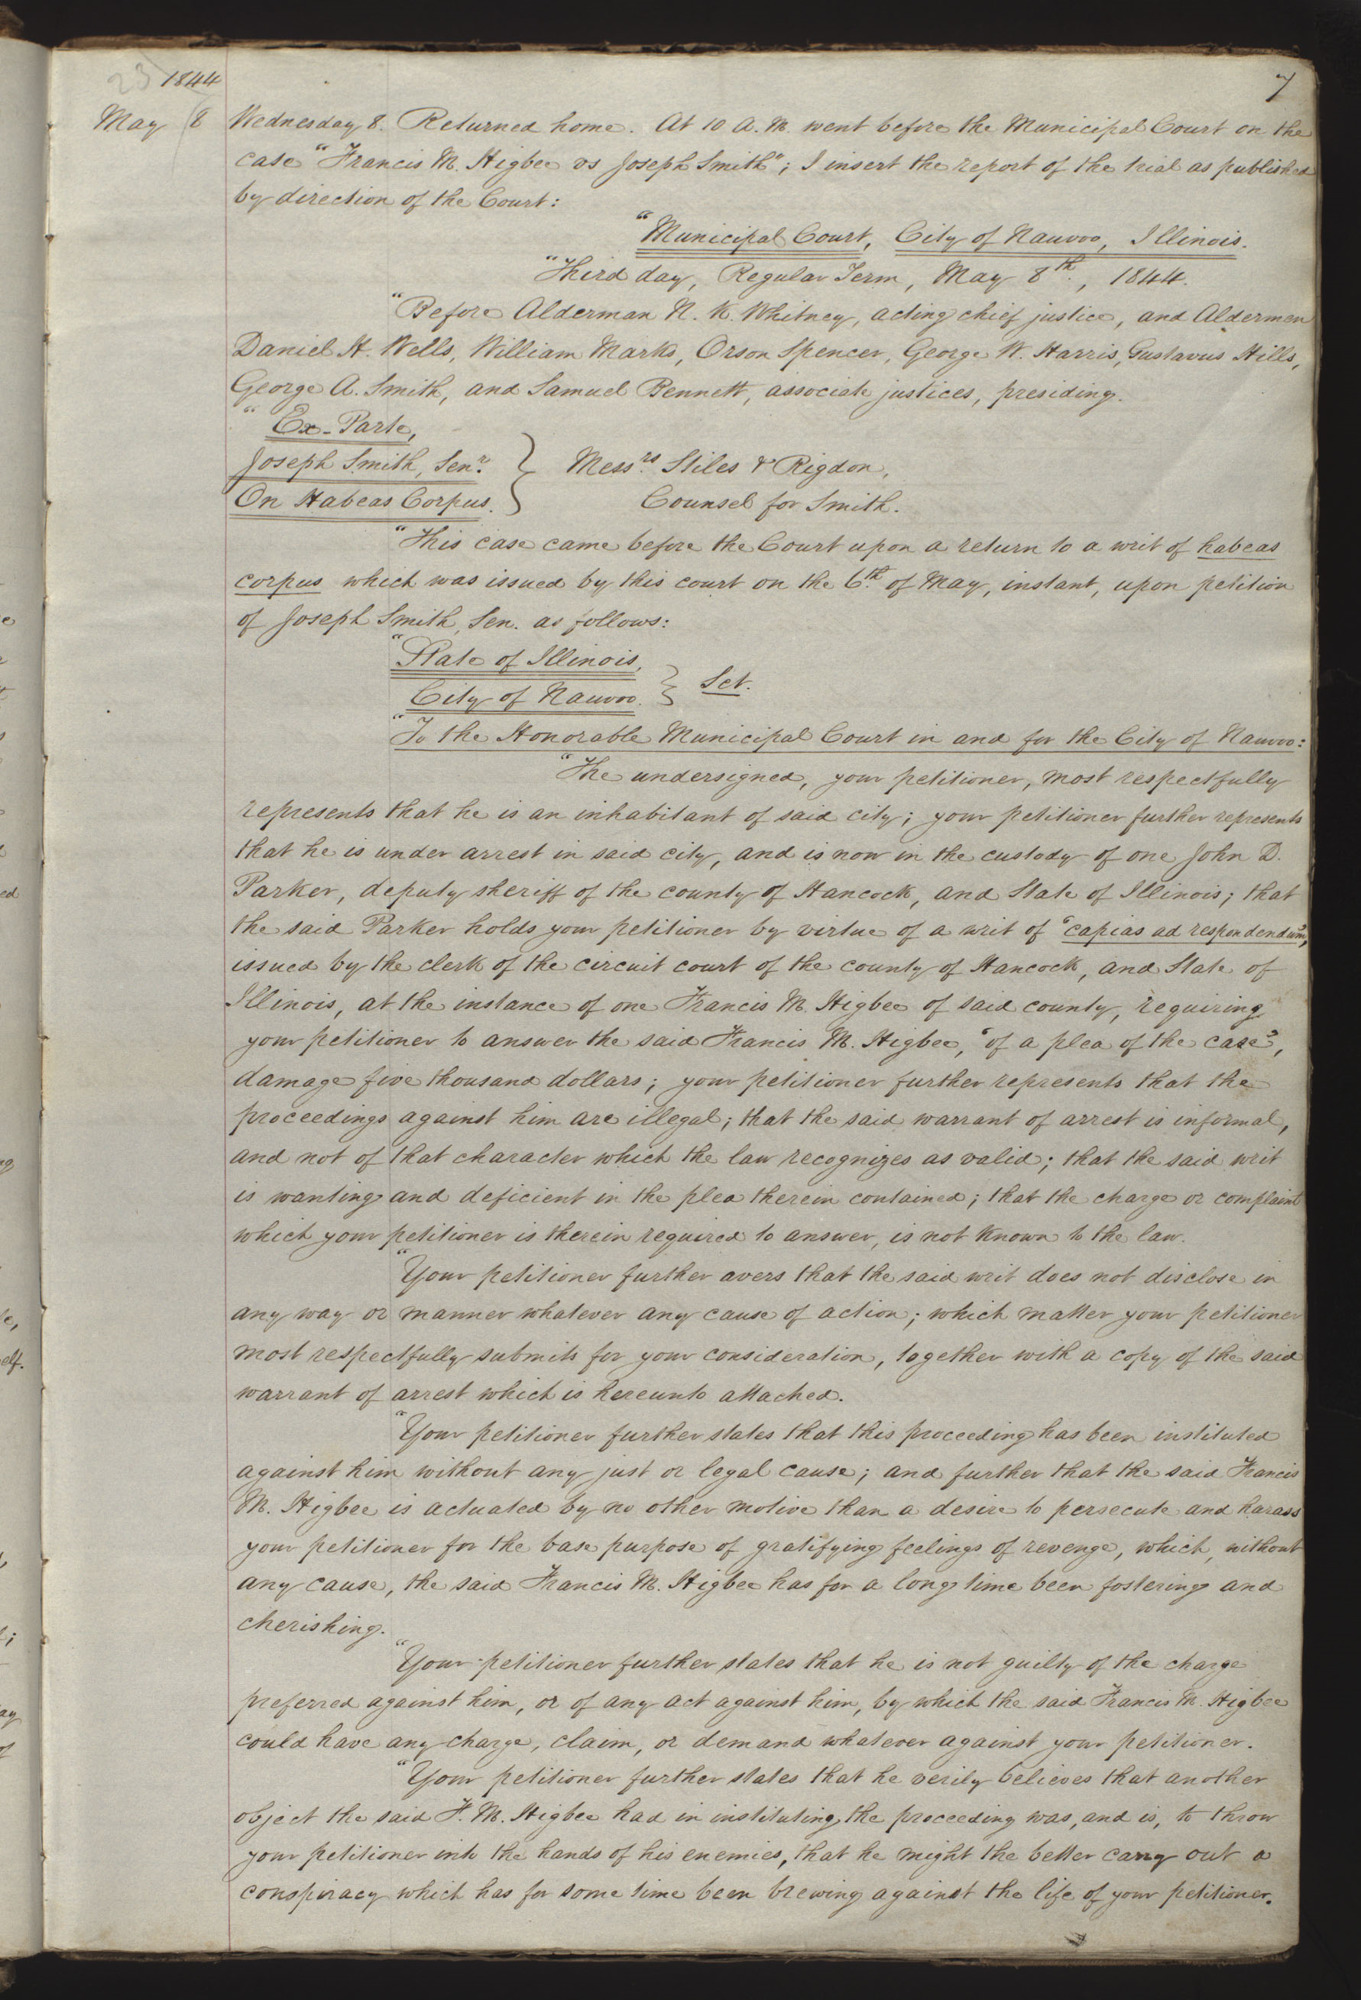 7
23 1844
May 8 Wednesday 8. Returned home. At 10 A. M. went before the Municipal Court on the
case "Francis M. Higbee vs Joseph Smith"; I insert the report of the trial as published
by direction of the Court:
"Municipal Court, City of Nauvoo, Illinois.
"Third day, Regular Term, May 8th., 1844.
"Before Alderman N. K. Whitney, acting chief justice, and Aldermen
Daniel H. Wells, William Marks, Orson Spencer, George W. Harris, Gustavus Hills,
George A. Smith, and Samuel Bennett, associate justices, presiding.
"Ex-Parte,
Joseph Smith, Senr. } Messrs. Stiles & Rigdon,
On Habeas Corpus. Counsel for Smith.
"This case came before the Court upon a return to a writ of habeas
corpus which was issued by this court on the 6th. of May, instant, upon petition
of Joseph Smith, Sen. as follows:
"State of Illinois,
City of Nauvoo. } Sct.
"To the Honorable Municipal Court in and for the City of Nauvoo:
"The undersigned, your petitioner, most respectfully
represents that he is an inhabitant of said city; your petitioner further represents
that he is under arrest in said city, and is now in the custody of one John D.
Parker, deputy sheriff of the county of Hancock, and State of Illinois; that
the said Parker holds your petitioner by virtue of a writ of "capias ad respondendum",
issued by the clerk of the circuit court of the county of Hancock, and State of
Illinois, at the instance of one Francis M. Higbee of said county, requiring
your petitioner to answer the said Francis M. Higbee, "of a plea of the case",
damage five thousand dollars; your petitioner further represents that the
proceedings against him are illegal; that the said warrant of arrest is informal,
and not of that character which the law recognizes as valid; that the said writ
is wanting and deficient in the plea therein contained; that the charge or complaint
which your petitioner is therein required to answer, is not known to the law.
"Your petitioner further avers that the said writ does not disclose in
any way or manner whatever any cause of action; which matter your petitioner
most respectfully submits for your consideration, together with a copy of the said
warrant of arrest which is hereunto attached.
"Your petitioner further states that this proceeding has been instituted
against him without any just or legal cause; and further that the said Francis
M. Higbee is actuated by no other motive than a desire to persecute and harass
your petitioner for the base purpose of gratifying feelings of revenge, which, without
any cause, the said Francis M. Higbee has for a long time been fostering and
cherishing.
"Your petitioner further states that he is not guilty of the charge
preferred against him, or of any act against him, by which the said Francis M. Higbee
could have any charge, claim, or demand whatever against your petitioner.
"Your petitioner further states that he verily believes that another
object the said F. M. Higbee had in instituting the proceeding was, and is, to throw
your petitioner into the hands of his enemies, that he might the better carry out a
conspiracy which has for some time been brewing against the life of your petitioner.